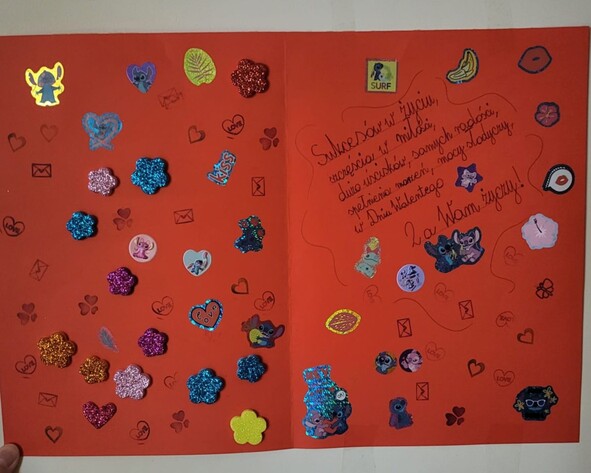 SURF
Sukcesów w życiu,
szczęścia w miłości,
dużo uścisków, samych radości,
spełnienia marzeń, mocy słodyczy.
w Dniu Walentego
2a Wam życzy!
KISS
LOVE
LOVE
LOVE
LOVE
LOVE
LOVE
LOVE